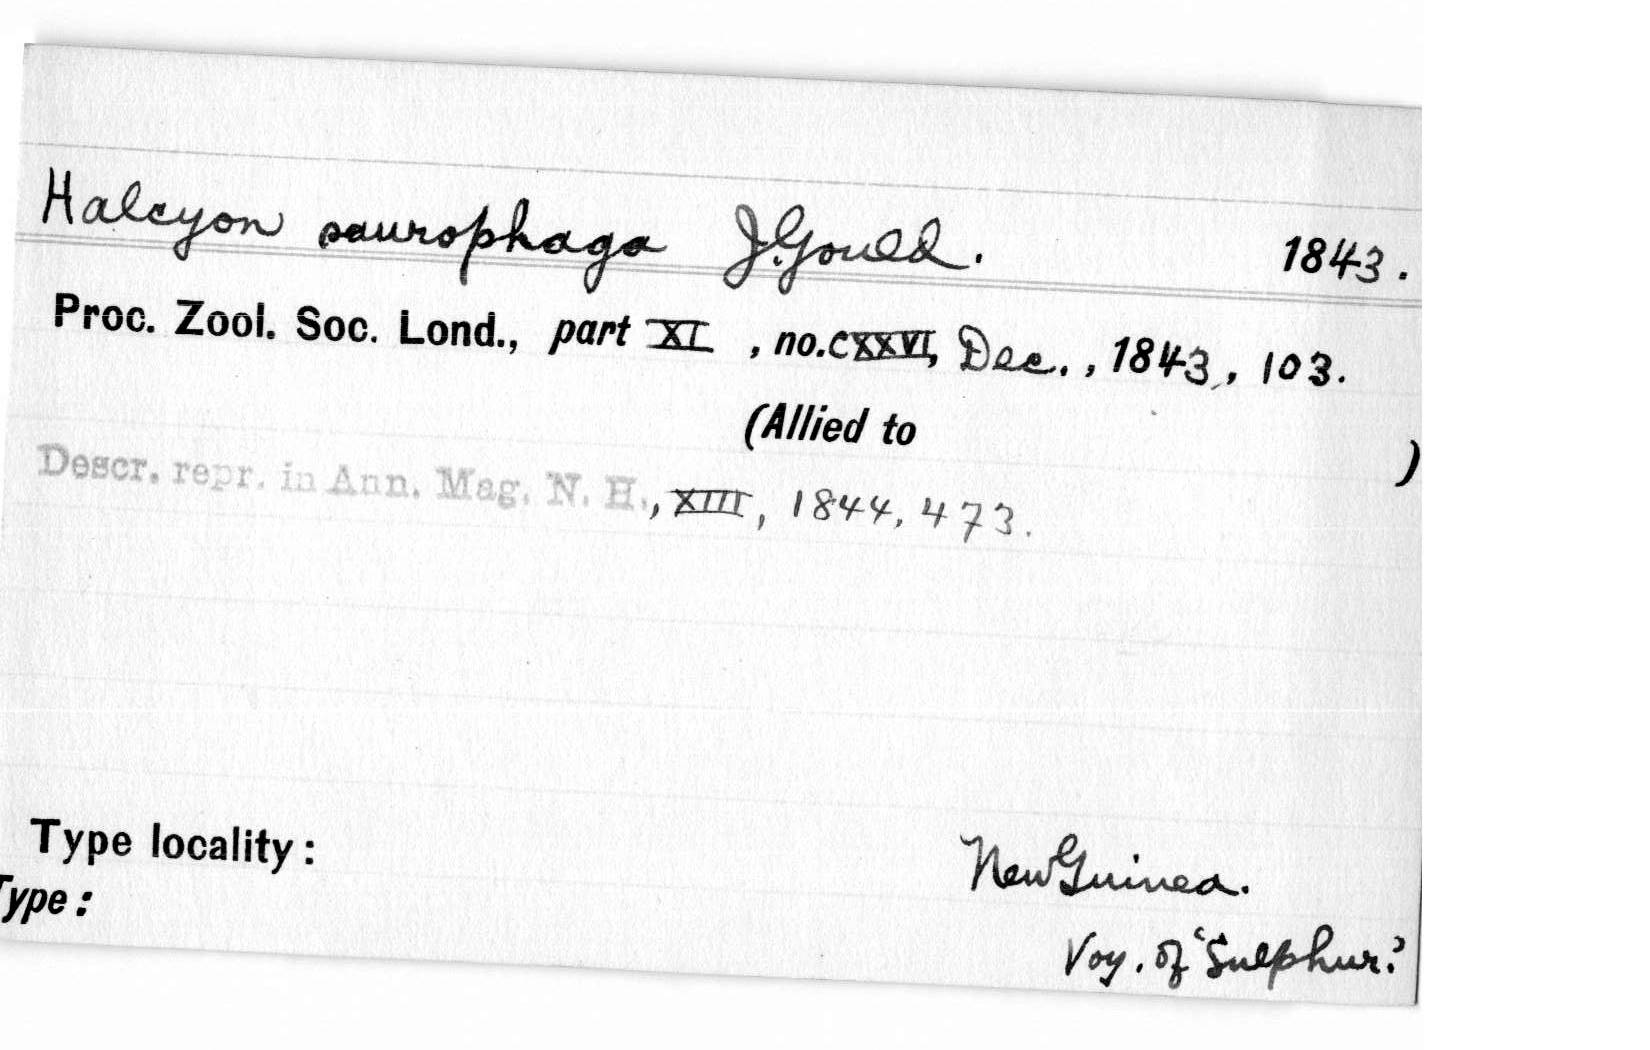 Halcyon saurophaga J. Gould. 1843.
Proc. Zool. Soc. Lond., part XI , no. CXXVI, Dec. , 1843, , 103.
(Allied to )
Descr. repr. in Ann. Mag. N. H., XIII, 1844, 473.
Type locality: New Guinea.
Type: Voy. of 'Sulphur.'